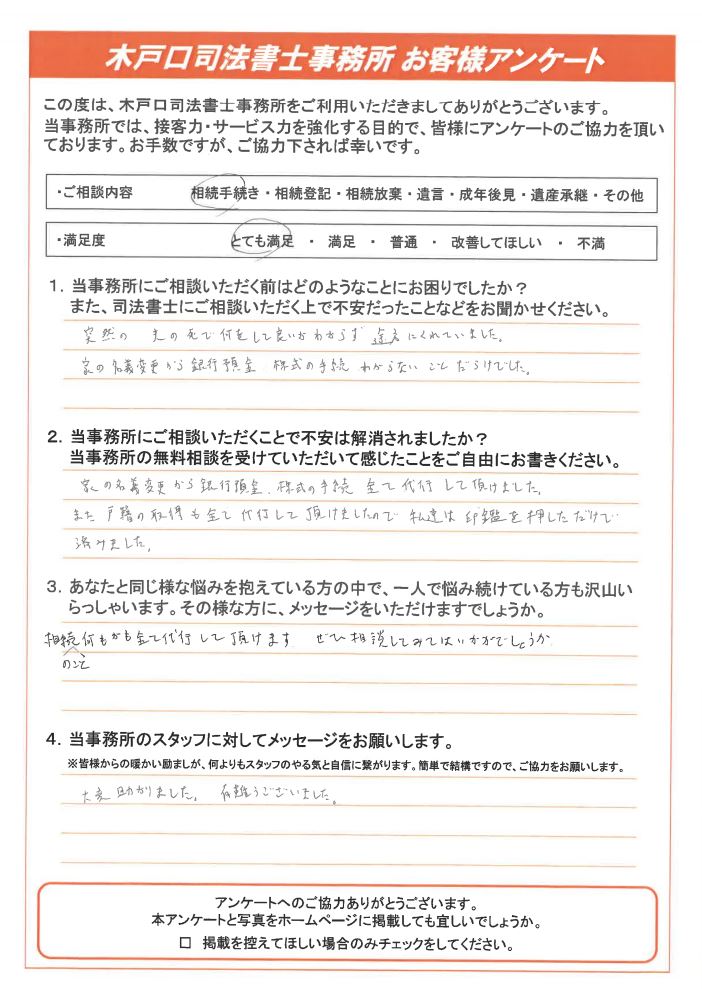 木戸口司法書士事務所 お客様アンケート
この度は、木戸口司法書士事務所をご利用いただきましてありがとうございます。
当事務所では、接客力・サービス力を強化する目的で、皆様にアンケートのご協力を頂い
ております。お手数ですが、ご協力下されば幸いです。
・ご相談内容 相続手続き・相続登記・相続放棄・遺言・成年後見・遺産承継・その他
・満足度 とても満足 ・ 満足 ・ 普通 ・ 改善してほしい ・ 不満
1. 当事務所にご相談いただく前はどのようなことにお困りでしたか？
また、司法書士にご相談いただく上で不安だったことなどをお聞かせください。
突然の 夫の死で何をして良いかわからず 途方にくれていました。
家の名義変更から銀行預金 株式の手続 わからないことだらけでした。
2. 当事務所にご相談いただくことで不安は解消されましたか？
当事務所の無料相談を受けていただいて感じたことをご自由にお書きください。
家の名義変更から銀行預金、株式の手続 全て代行して頂けました。
また戸籍の取得も全て代行して頂けましたので 私達は印鑑を押しただけで
済みました。
3. あなたと同じ様な悩みを抱えている方の中で、一人で悩み続けている方も沢山い
らっしゃいます。その様な方に、メッセージをいただけますでしょうか。
相続何もかも全て代行して頂けます ぜひ相談してみてはいかがでしょうか
のこと
4. 当事務所のスタッフに対してメッセージをお願いします。
※皆様からの暖かい励ましが、何よりもスタッフのやる気と自信に繋がります。簡単で結構ですので、ご協力をお願いします。
大変助かりました。 有難うございました。
アンケートへのご協力ありがとうございます。
本アンケートと写真をホームページに掲載しても宜しいでしょうか。
□ 掲載を控えてほしい場合のみチェックをしてください。